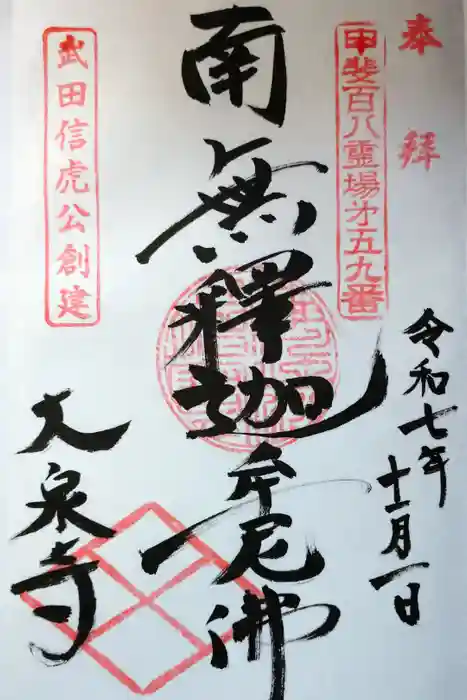 奉拝
甲斐百八霊場才五九番
令和七年
十一月一日
南無釋迦牟尼佛
武田信虎公創建
大泉寺